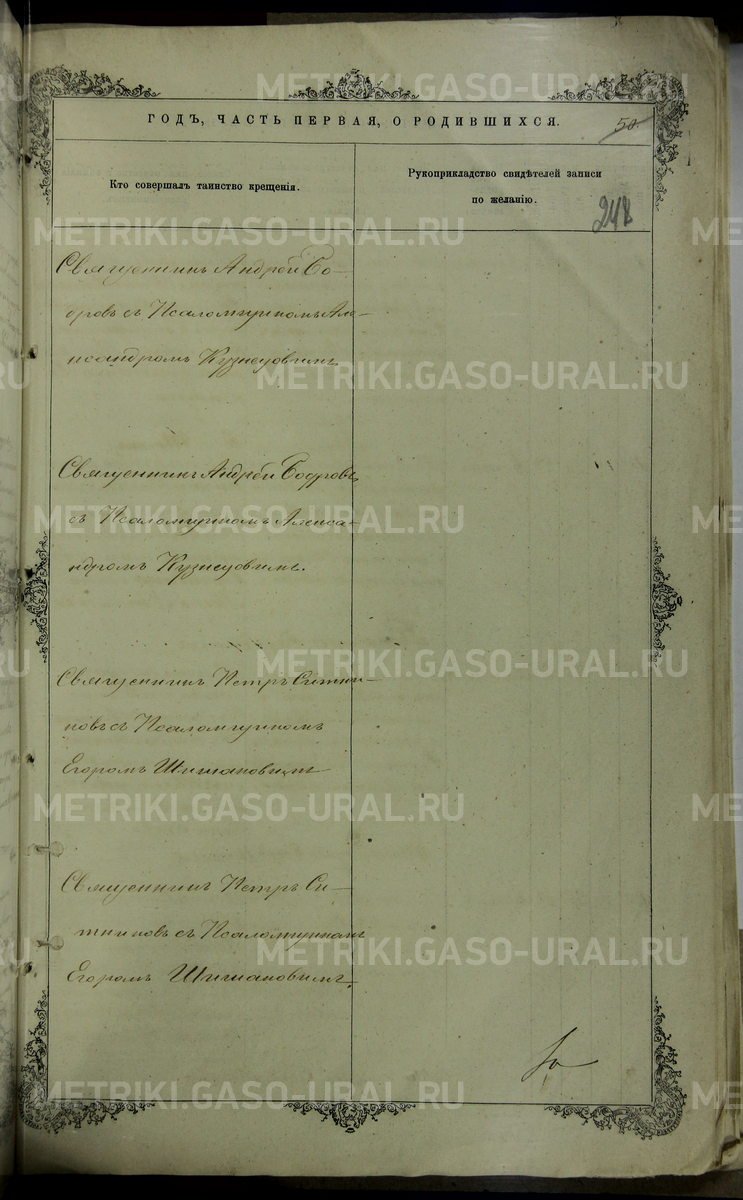 ГОДЪ, ЧАСТЬ ПЕРВАЯ, О РОДИВШИХСЯ.
50
Кто совершалъ таинство крещенія.
Рукоприкладство свидѣтелей записи
по желанію.
248
Священникъ Андрей Бо-
дровъ съ Псаломщикомъ Але-
ксандромъ Кузнецовымъ
Священникъ Андрей Бодровъ
съ Псаломщикомъ Алекса-
ндромъ Кузнецовымъ.
Священникъ Петръ Ситни-
ковъ съ Псаломщикомъ
Егоромъ Шишановымъ
Священникъ Петръ Си-
тниковъ съ Псаломщикомъ
Егоромъ Шишановымъ.
METRIKI.GASO-URAL.RU